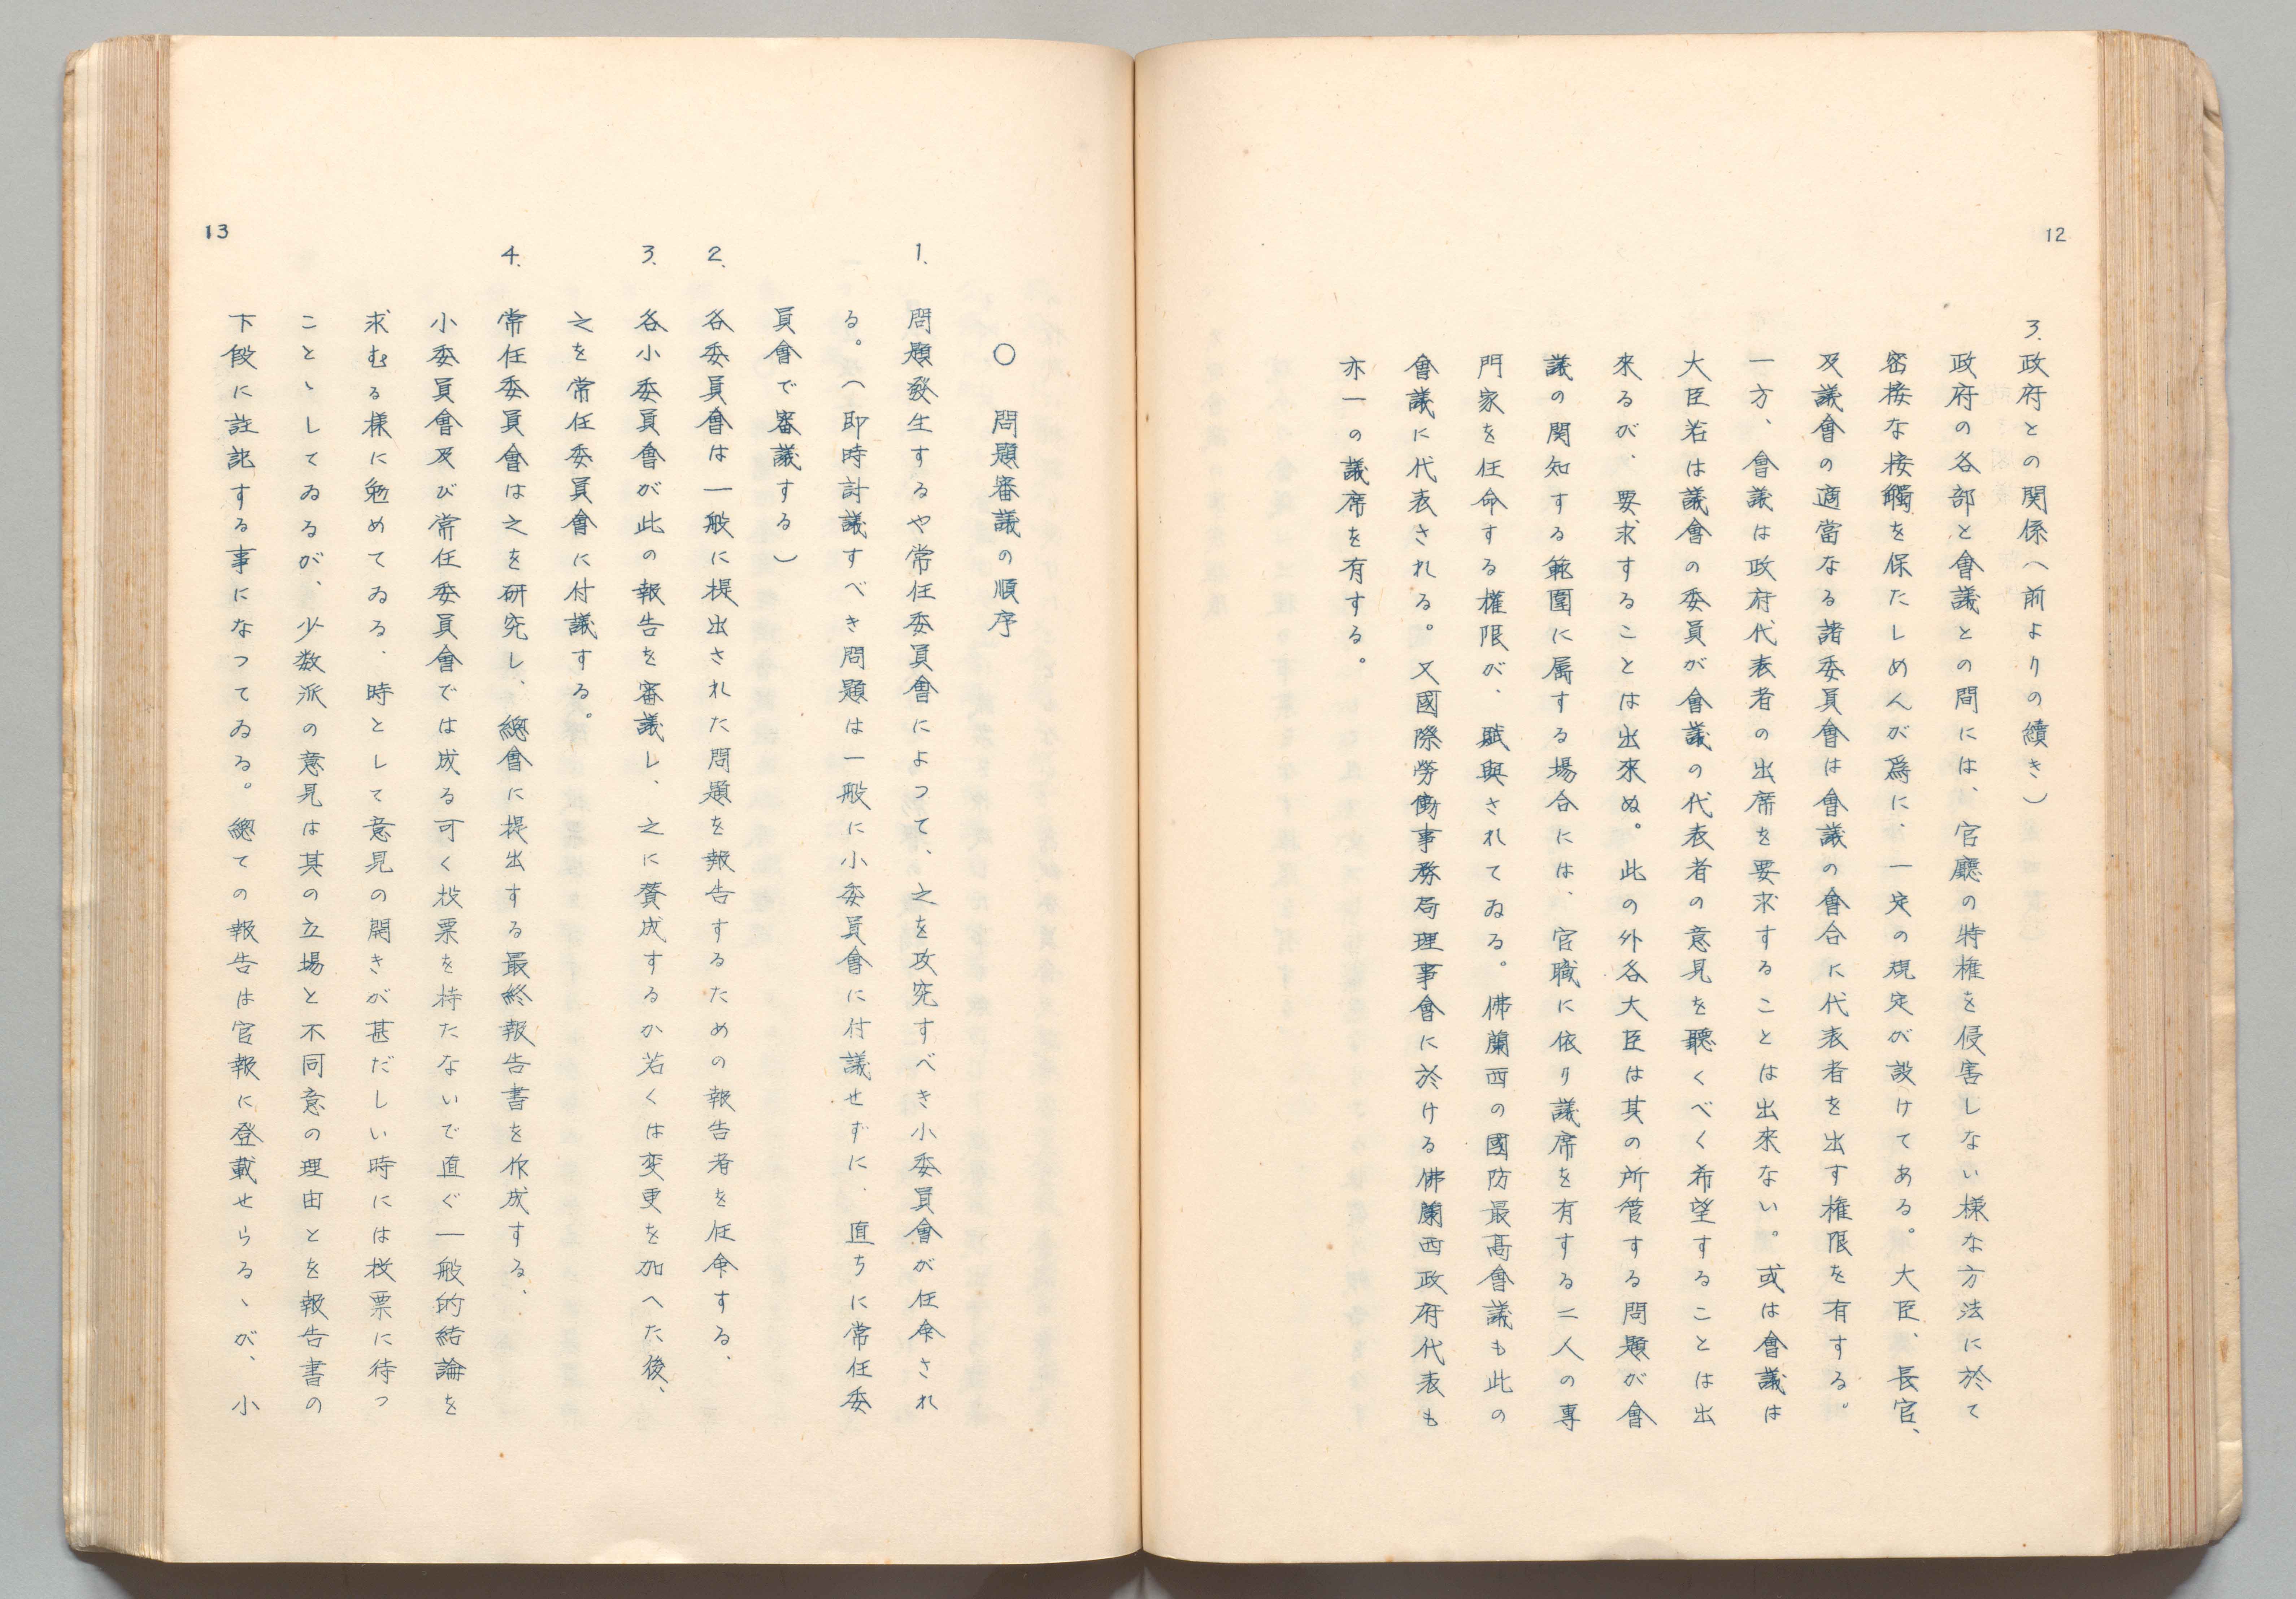 12
3.政府との関係（前よりの續き）
政府の各部と會議との間には、官廳の特権を侵害しない様な方法に於て
密接な接觸を保たしめんが爲に、一定の規定が設けてある。大臣、長官、
及議會の適當なる諸委員會は會議の會合に代表者を出す権限を有する。
一方、會議は政府代表者の出席を要求することは出来ない。或は會議は
大臣若は議會の委員が會議の代表者の意見を聽くべく希望することは出
来るが、要求することは出來ぬ。此の外各大臣は其の所管する問題が會
議の関知する範圍に属する場合には、官職に依り議席を有する二人の專
門家を任命する權限が、賦與されてゐる。佛蘭西の國防最高會議も此の
會議に代表される。又國際勞働事務局理事會に於ける佛蘭西政府代表も
亦一の議席を有する。
〇　問題審議の順序
1.　問題發生するや常任委員會によつて、之を攻究すべき小委員會が任命され
る。（即時討議すべき問題は一般に小委員會に付議せずに、直ちに常任委
員會で審議する）
2.　各委員會は一般に提出された問題を報告するための報告者を任命する、
3.　各小委員會が此の報告を審議し、之に賛成するか若くは変更を加へた後、
之を常任委員會に付議する。
4.　常任委員會は之を研究し、總會に提出する最終報告書を作成する、
小委員會及び常任委員會では成る可く投票を待たないで直ぐ一般的結論を
求むる様に勉めてゐる、時として意見の開きが甚だしい時には投票に待つ
ことゝしてゐるが、少数派の意見は其の立場と不同意の理由とを報告書の
下段に註記する事になつてゐる。總ての報告は官報に登載せらるゝが、小
13